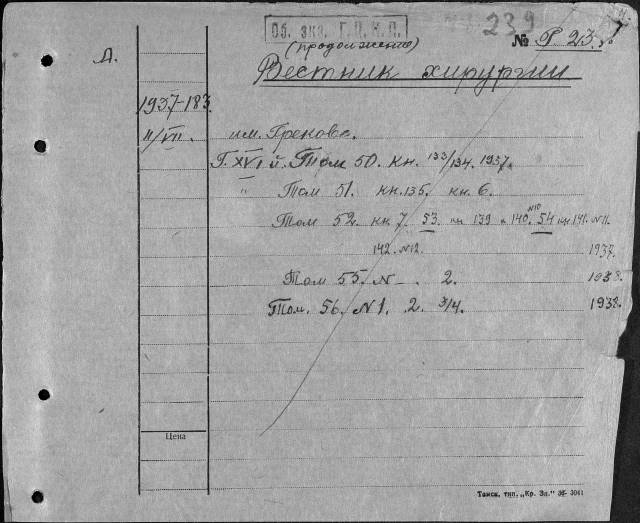 Об. экз. Г.П.Н.Б.
239
(продолжение)
№ Р 23.
Д.
Вестник хирургии
1937-183
11/VII. им. Грекова.
Г. XVI й. Том 50. кн. 133/134. 1937.
" Том 51. кн. 135. кн. 6.
Том 52. кн 7. 53. кн 139 и 140. №10 54 кн 141. №11.
142. №12. 1937.
Том 55. № - . 2. 1938.
Том. 56. №1. 2. 3/4. 1938.
Цена
Томск, тип. „Кр. Зн." 3041